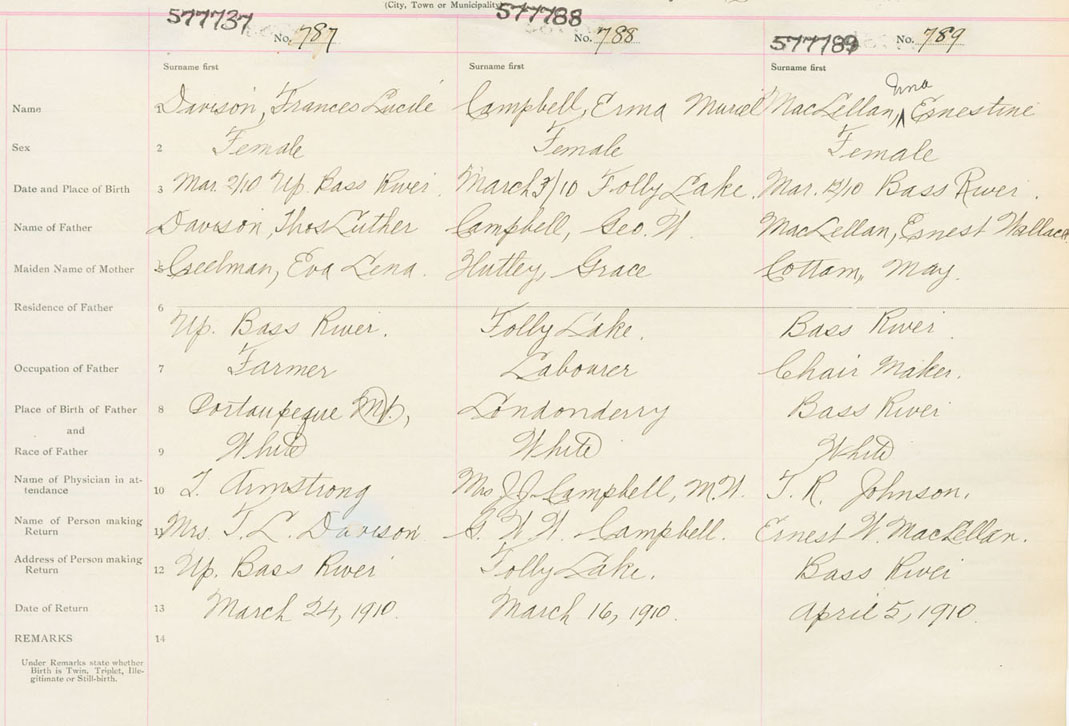 (City, Town or Municipality)
577737 577788
No. 787 No. 788 577789 No. 789
Surname first Surname first Surname first
Irna
Name 1 Davison, Frances Lucile Campbell, Erma Muriel MacLellan, ^ Ernestine
Sex 2 Female Female Female
Date and Place of Birth 3 Mar. 2/10 Up. Bass River. March 3/10 Folly Lake. Mar. 12/10 Bass River.
Name of Father Davison, Thos Luther Campbell, Geo. W. MacLellan, Ernest Wallace
Maiden Name of Mother 5 Creelman, Eva Lena. Hutley, Grace Cottam, May.
Residence of Father 6 Up. Bass River. Folly Lake. Bass River
Occupation of Father 7 Farmer Labourer Chair Maker.
Place of Birth of Father 8 Portaupeque Mt., Londonderry Bass River
and
Race of Father 9 White White White
Name of Physician in at-
tendance 10 T. Armstrong Mrs J.J. Campbell, M.W. T. R. Johnson.
Name of Person making
Return 11 Mrs. T. L. Davison G. W. W. Campbell. Ernest W. MacLellan.
Address of Person making
Return 12 Up. Bass River Folly Lake. Bass River
Date of Return 13 March 24, 1910. March 16, 1910. April 5, 1910.
REMARKS 14
Under Remarks state whether
Birth is Twin, Triplet, Ille-
gitimate or Still-birth.